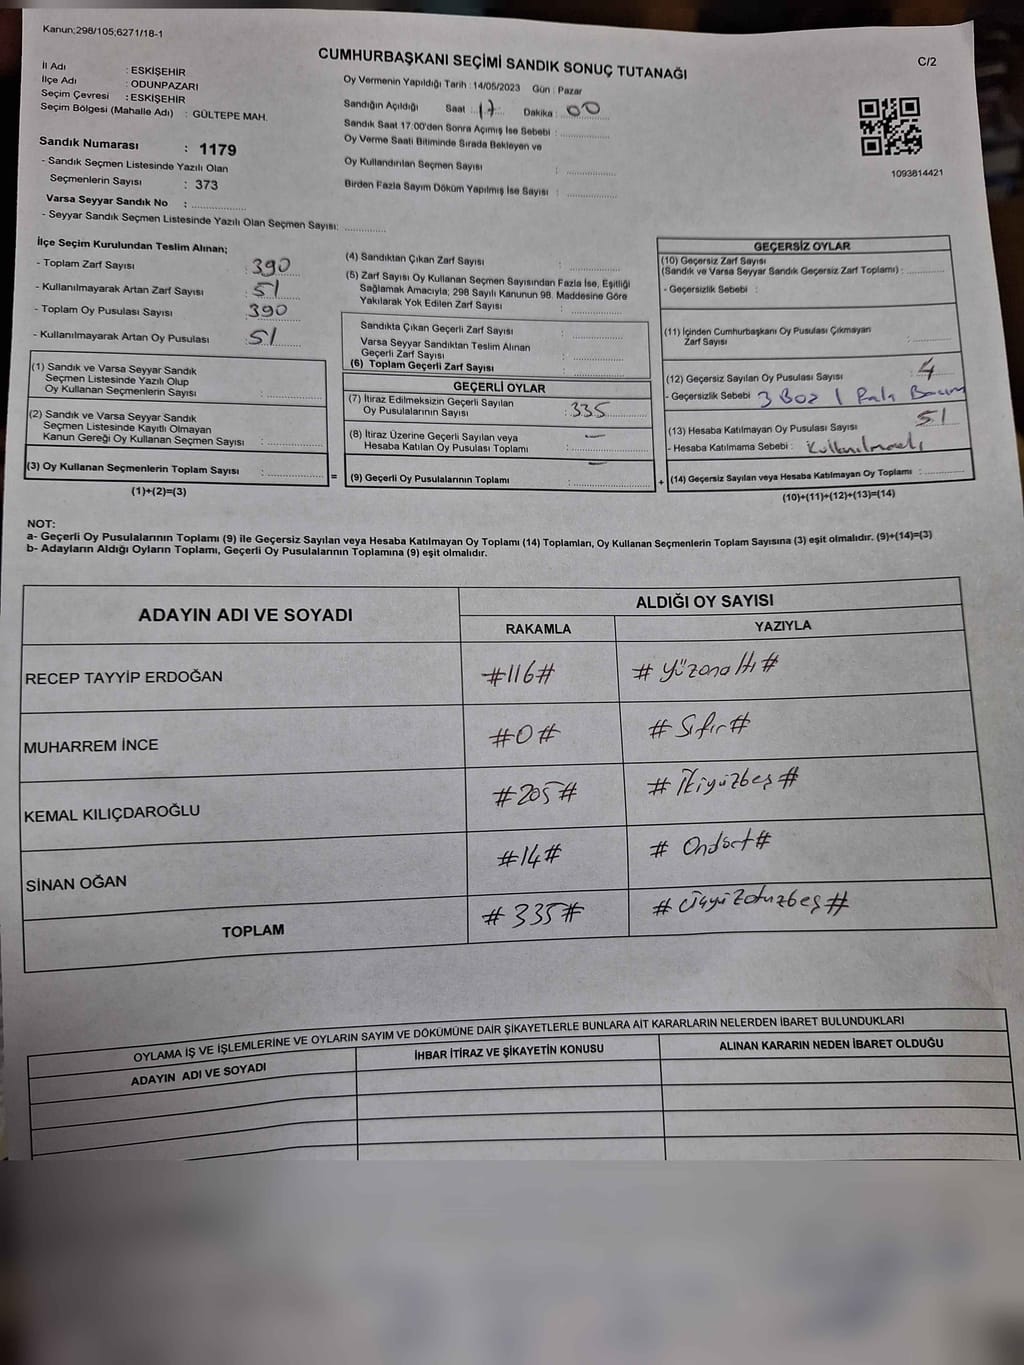 Kanun;298/105;6271/18-1
CUMHURBAŞKANI SEÇİMİ SANDIK SONUÇ TUTANAĞI
C/2
İl Adı : ESKİŞEHİR
İlçe Adı : ODUNPAZARI
Seçim Çevresi : ESKİŞEHİR
Seçim Bölgesi (Mahalle Adı) : GÜLTEPE MAH.
Sandık Numarası : 1179
- Sandık Seçmen Listesinde Yazılı Olan
Seçmenlerin Sayısı : 373
Varsa Seyyar Sandık No : ..................
- Seyyar Sandık Seçmen Listesinde Yazılı Olan Seçmen Sayısı: .............
Oy Vermenin Yapıldığı Tarih : 14/05/2023 Gün : Pazar
Sandığın Açıldığı Saat : 17 Dakika : 00
Sandık Saat 17:00'den Sonra Açımış İse Sebebi : ...............
Oy Verme Saati Bitiminde Sırada Bekleyen ve
Oy Kullandırılan Seçmen Sayısı : ...............
Birden Fazla Sayım Döküm Yapılmış İse Sayısı : ...............
1093814421
İlçe Seçim Kurulundan Teslim Alınan;
- Toplam Zarf Sayısı : 390
- Kullanılmayarak Artan Zarf Sayısı : 51
- Toplam Oy Pusulası Sayısı : 390
- Kullanılmayarak Artan Oy Pusulası : 51
(1) Sandık ve Varsa Seyyar Sandık
Seçmen Listesinde Yazılı Olup
Oy Kullanan Seçmenlerin Sayısı : ...............
(2) Sandık ve Varsa Seyyar Sandık
Seçmen Listesinde Kayıtlı Olmayan
Kanun Gereği Oy Kullanan Seçmen Sayısı : ...............
(3) Oy Kullanan Seçmenlerin Toplam Sayısı : ...............
(1)+(2)=(3)
=
(4) Sandıktan Çıkan Zarf Sayısı : ...............
(5) Zarf Sayısı Oy Kullanan Seçmen Sayısından Fazla İse, Eşitliği
Sağlamak Amacıyla; 298 Sayılı Kanunun 98. Maddesine Göre
Yakılarak Yok Edilen Zarf Sayısı : ...............
Sandıkta Çıkan Geçerli Zarf Sayısı : ...............
Varsa Seyyar Sandıktan Teslim Alınan
Geçerli Zarf Sayısı : ...............
(6) Toplam Geçerli Zarf Sayısı : ...............
GEÇERLİ OYLAR
(7) İtiraz Edilmeksizin Geçerli Sayılan
Oy Pusulalarının Sayısı : 335
(8) İtiraz Üzerine Geçerli Sayılan veya
Hesaba Katılan Oy Pusulası Toplamı : —
(9) Geçerli Oy Pusulalarının Toplamı : —
+
GEÇERSİZ OYLAR
(10) Geçersiz Zarf Sayısı
(Sandık ve Varsa Seyyar Sandık Geçersiz Zarf Toplamı) : ............
- Geçersizlik Sebebi :
(11) İçinden Cumhurbaşkanı Oy Pusulası Çıkmayan
Zarf Sayısı : ............
(12) Geçersiz Sayılan Oy Pusulası Sayısı : 4
- Geçersizlik Sebebi : 3 Boş 1
(13) Hesaba Katılmayan Oy Pusulası Sayısı : 51
- Hesaba Katılmama Sebebi : Kullanılmadı
(14) Geçersiz Sayılan veya Hesaba Katılmayan Oy Toplamı : ............
(10)+(11)+(12)+(13)=(14)
NOT:
a- Geçerli Oy Pusulalarının Toplamı (9) ile Geçersiz Sayılan veya Hesaba Katılmayan Oy Toplamı (14) Toplamları, Oy Kullanan Seçmenlerin Toplam Sayısına (3) eşit olmalıdır. (9)+(14)=(3)
b- Adayların Aldığı Oyların Toplamı, Geçerli Oy Pusulalarının Toplamına (9) eşit olmalıdır.
ADAYIN ADI VE SOYADI
ALDIĞI OY SAYISI
RAKAMLA YAZIYLA
RECEP TAYYİP ERDOĞAN #116# # Yüzonaltı #
MUHARREM İNCE #0# # Sıfır #
KEMAL KILIÇDAROĞLU #205# # İkiyüzbeş #
SİNAN OĞAN #14# # Ondört #
TOPLAM #335# # Üçyüzotuzbeş #
OYLAMA İŞ VE İŞLEMLERİNE VE OYLARIN SAYIM VE DÖKÜMÜNE DAİR ŞİKAYETLERLE BUNLARA AİT KARARLARIN NELERDEN İBARET BULUNDUKLARI
ADAYIN ADI VE SOYADI İHBAR İTİRAZ VE ŞİKAYETİN KONUSU ALINAN KARARIN NEDEN İBARET OLDUĞU